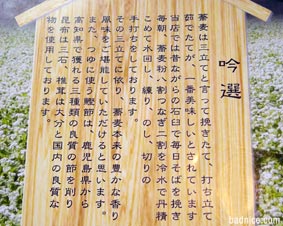 吟選
蕎麦は三立てと言って挽きたて、打ち立て
茹でたてが、一番美味しいとされています
当店では昔ながらの石臼で毎日そばを挽き
毎朝、蕎麦粉八割つなぎ二割を冷水で丹精
こめて水回し、練り、のし、切りの
手打ちをしております。
その三立てに依り、蕎麦本来の豊かな香り
風味をご堪能していただけると思います。
また、つゆに使う鰹節は、鹿児島県から
高知県で獲れる三種類の良質の節を削り
昆布は三石、椎茸は大分と国内の良質な
物を使用しております。
badnice.com